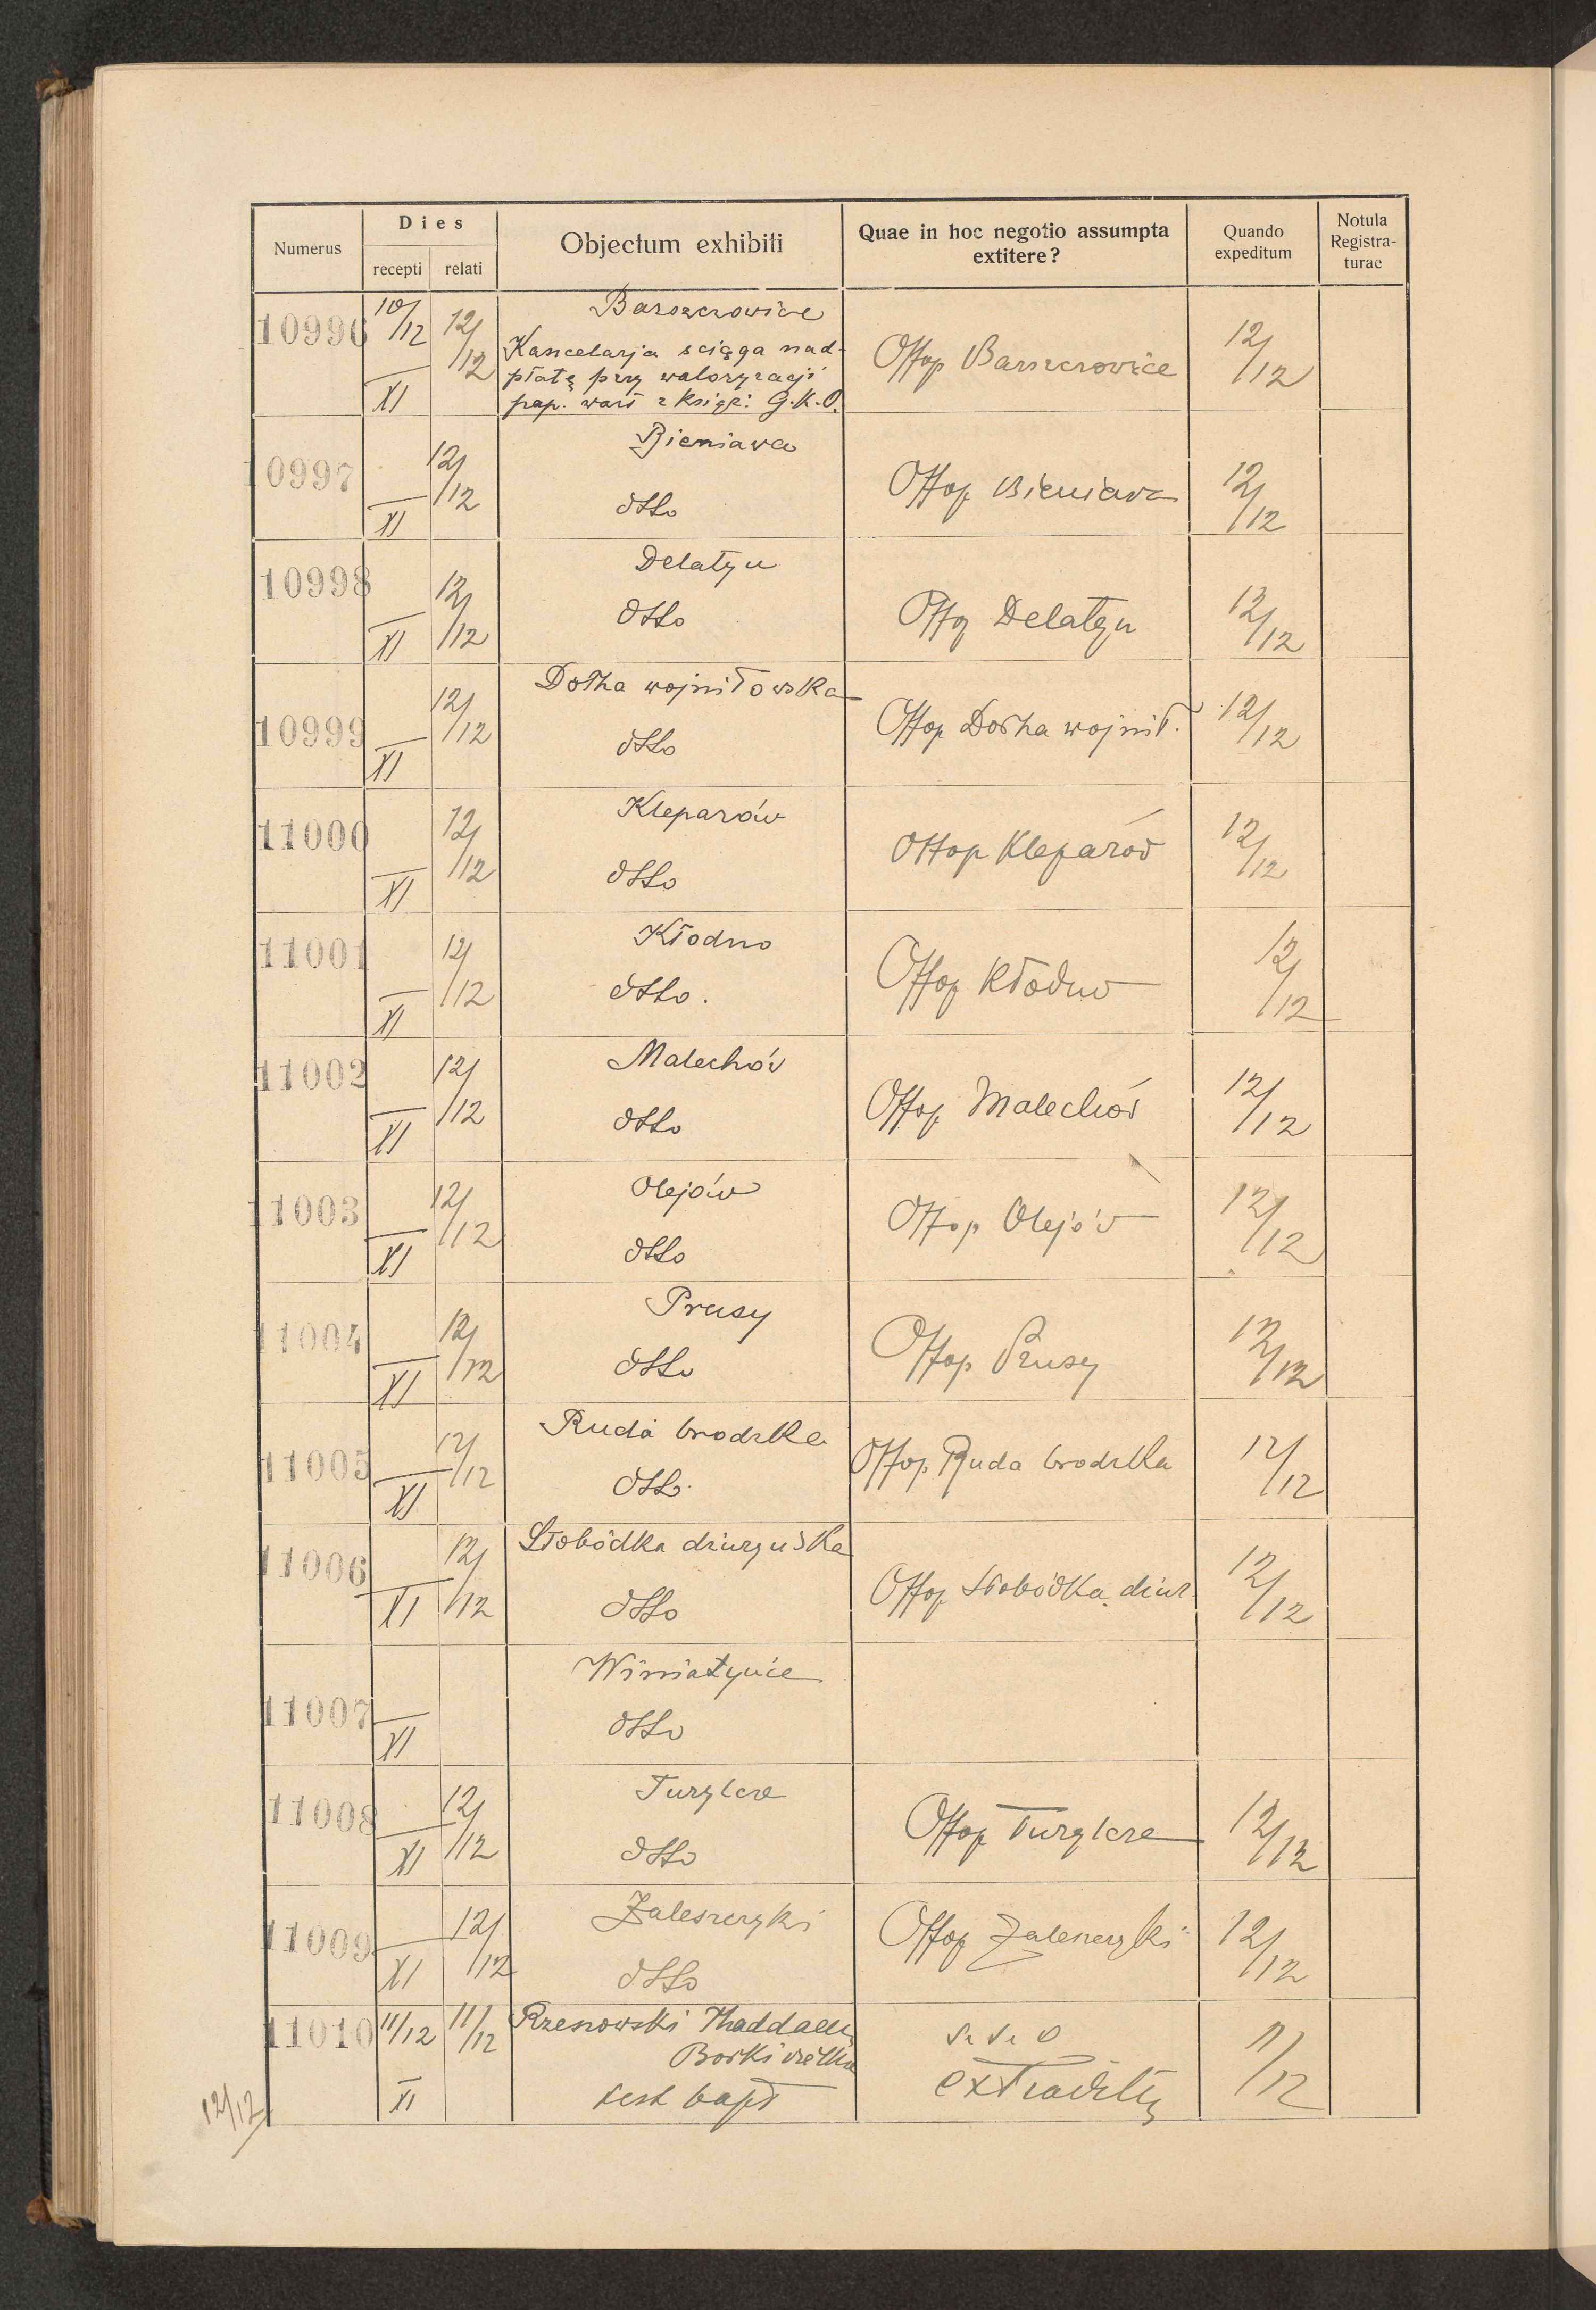 Numerus
Dies
recepti relati
Objectum exhibiti
Quae in hoc negotio assumpta
extitere?
Quando
expeditum
Notula
Registra-
turae
10996 10/12 XI 12/12
Barszczowice
Kancelarja ściąga nad-
płatę przy waloryzacji
pap. wart z księgi G.K.O.
Offop Barszczowice 12/12
10997 XI 12/12
Bieniawa
dtto
Offop Bieniawa 12/12
10998 XI 12/12
Delatyn
dtto
Offop Delatyn 12/12
10999 XI 12/12
Dołha wojniłowska
dtto
Offop Dołha wojnił. 12/12
11000 XI 12/12
Kleparów
dtto
Offop Kleparów 12/12
11001 XI 12/12
Kłodno
dtto.
Offop Kłodno 12/12
11002 XI 12/12
Malechów
dtto
Offop Malechów 12/12
11003 XI 12/12
Olejów
dtto
Offop Olejów 12/12
11004 XI 12/12
Prusy
dtto
Offop Prusy 12/12
11005 XI 12/12
Ruda brodzka
dtto.
Offop Ruda brodzka 12/12
11006 XI 12/12
Słobódka dżuryńska
dtto
Offop Słobódka dżur. 12/12
11007 XI
Winiatyńce
dtto
11008 XI 12/12
Turylcze
dtto
Offop Turylcze 12/12
11009 XI 12/12
Zaleszczyki
dtto
Offop Zaleszczyki 12/12
11010 11/12 XI 11/12
Rzeszowski Thaddaeus
Borki wielkie
test bapt
extraditus 11/12
12/12